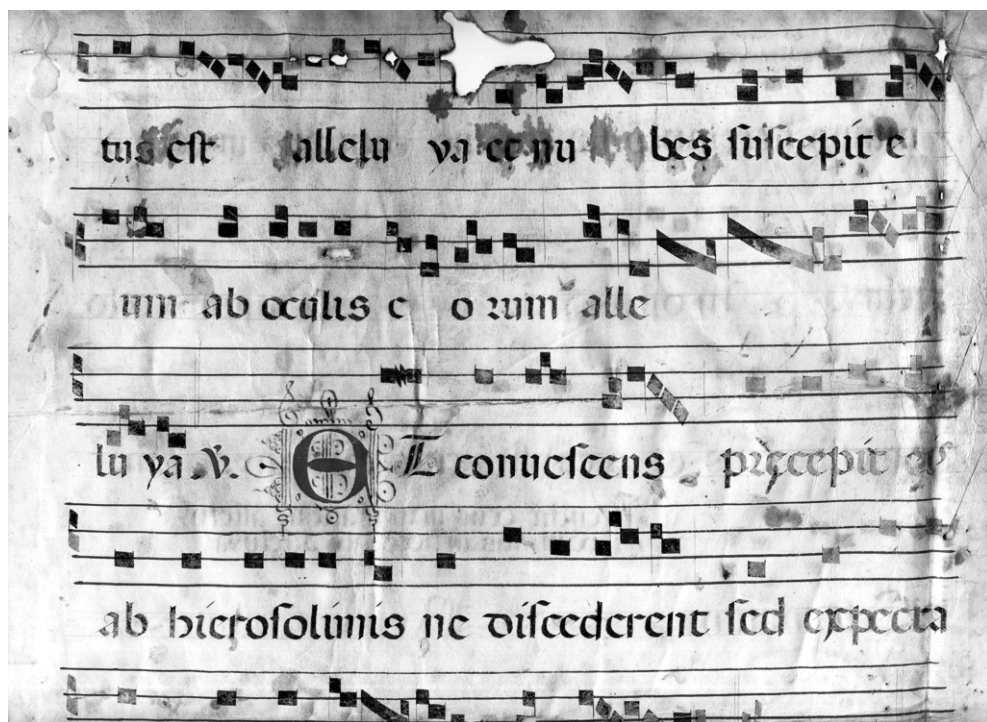 tus est allelu ya et nu bes suscepit e
um ab oculis e o rum alle
lu ya .V. E T conuescens precepit eis
ab hierosolimis ne discederent sed expecta